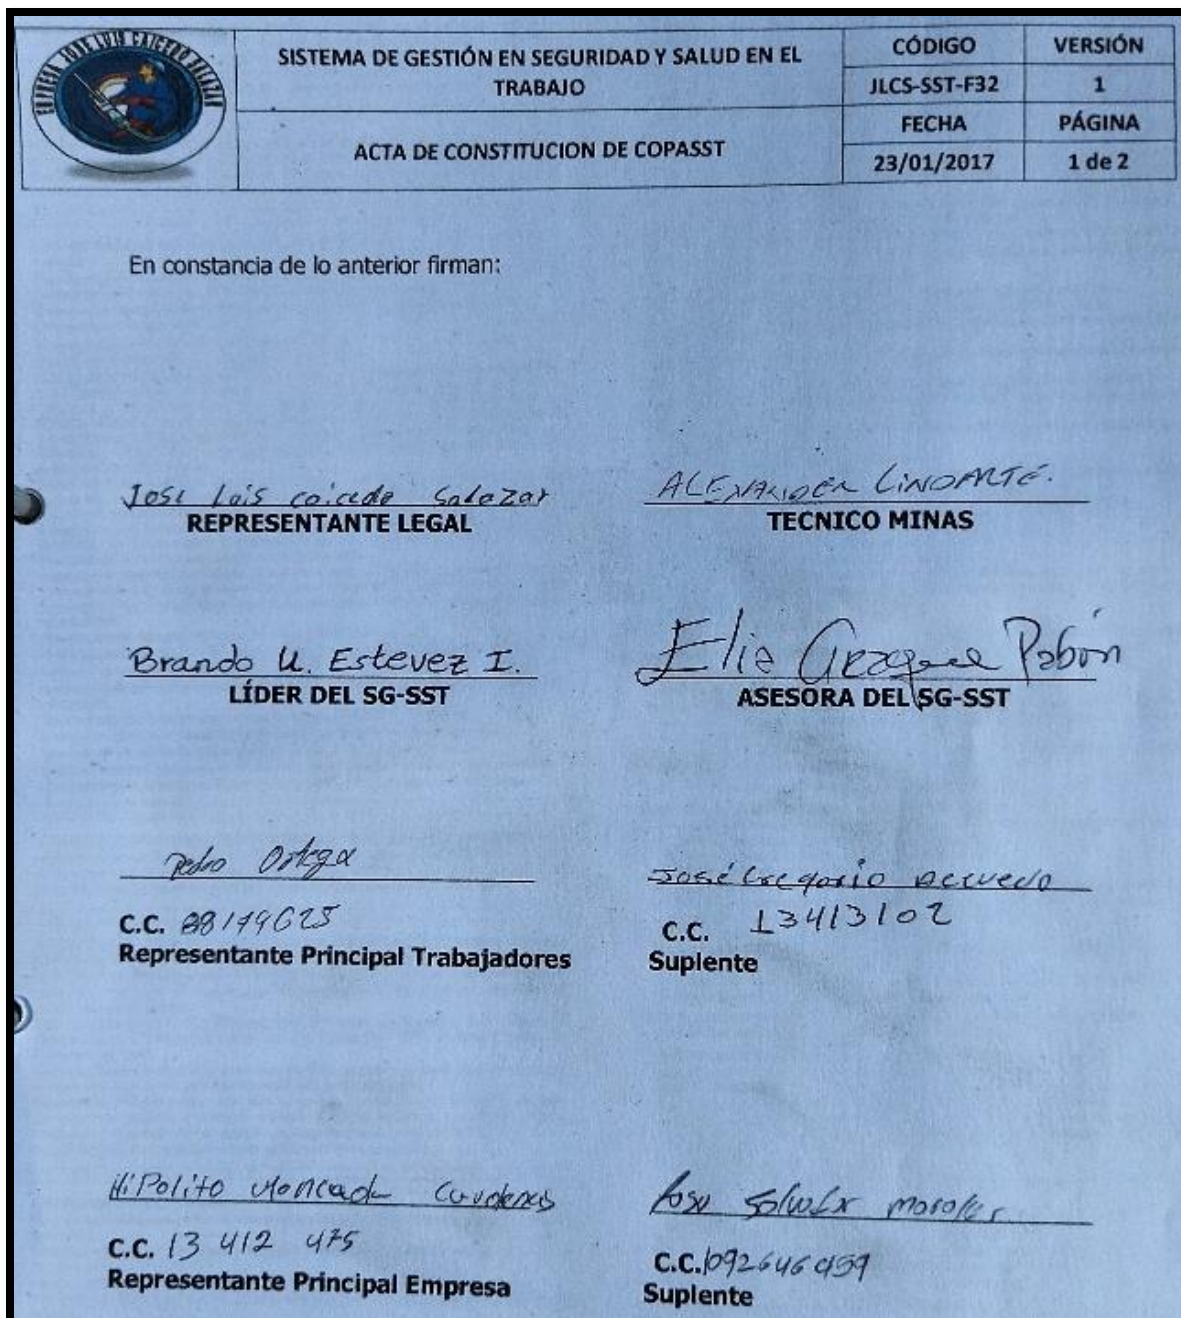 EMPRESA JOSE LUIS CAICEDO SALAZAR
SISTEMA DE GESTIÓN EN SEGURIDAD Y SALUD EN EL
TRABAJO
CÓDIGO VERSIÓN
JLCS-SST-F32 1
ACTA DE CONSTITUCION DE COPASST
FECHA PÁGINA
23/01/2017 1 de 2
En constancia de lo anterior firman:
Jose Luis Caicedo Salazar
REPRESENTANTE LEGAL
ALEXANDER LINDARTE.
TECNICO MINAS
Brando U. Estevez I.
LÍDER DEL SG-SST
Elia Pabón
ASESORA DEL SG-SST
Pedro Ortega
C.C.
Representante Principal Trabajadores
José Gregorio Acevedo
C.C. 13413102
Suplente
HiPolito Moncada Cardenas
C.C. 13 412 475
Representante Principal Empresa
C.C.
Suplente